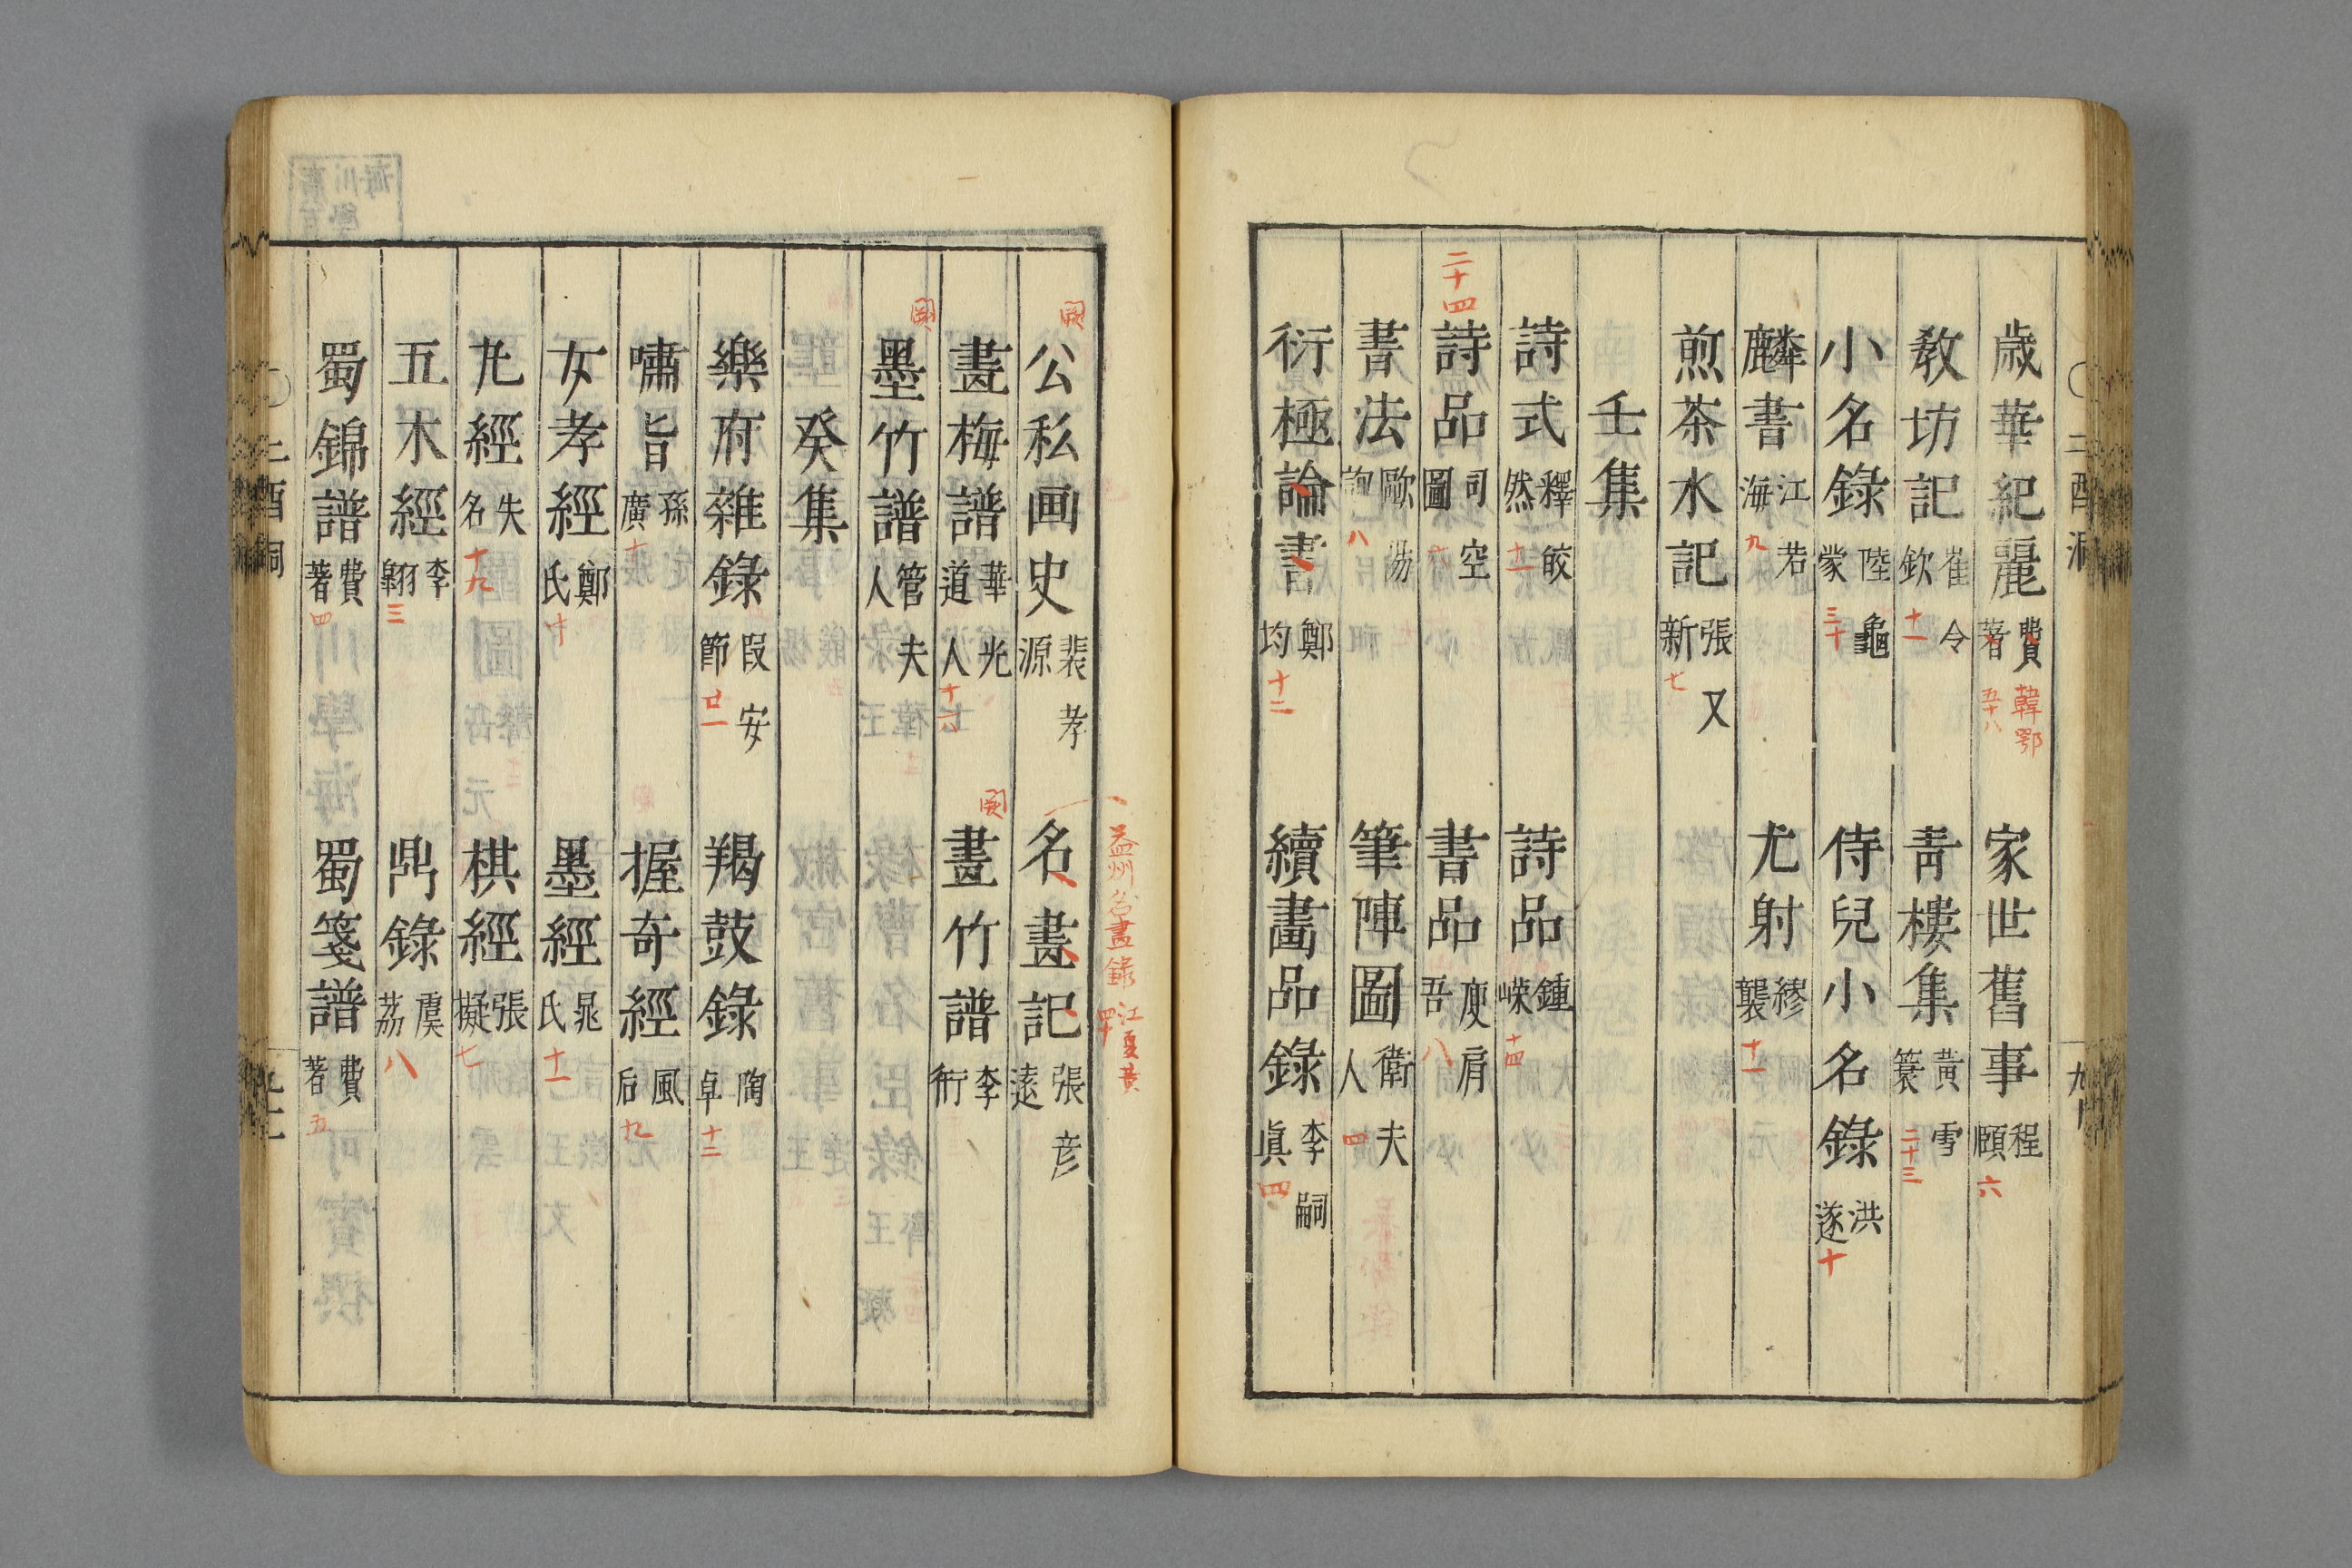 歳華紀麗 費著 韓鄂 五十八 家世舊事 程頤 六
敎坊記 崔令欽 十一 靑樓集 黃雪簑 二十三
小名錄 陸龜蒙 三十 侍兒小名錄 洪遂 十
麟書 江若海 九 尤射 繆襲 十一
煎茶水記 張又新 七
壬集
詩式 釋皎然 十一 詩品 鍾嶸 十四
二十四詩品 司空圖 六 書品 庾肩吾 八
書法 歐陽詢 八 筆陣圖 衛夫人 四
衍極論書 鄭均 十二 續畫品錄 李嗣眞 四
公私画史 裴孝源 名畫記 張彦遠
益州名畫錄 江夏黃 四十
畫梅譜 華光道人 十六 畫竹譜 李衎
墨竹譜 管夫人
癸集
樂府雜錄 段安節 廿一 羯鼓錄 陶卓 十二
嘯旨 孫廣 十 握奇經 風后 九
女孝經 鄭氏 十 墨經 晁氏 十一
尤經 失名 十九 棋經 張擬 七
五木經 李翺 三 鼎錄 虞荔 八
蜀錦譜 費著 四 蜀箋譜 費著 五